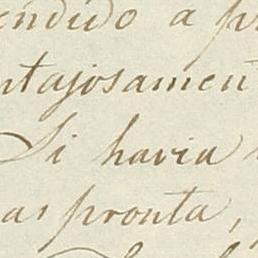 endido a pr
ntajosament
Si havia
as pronta,